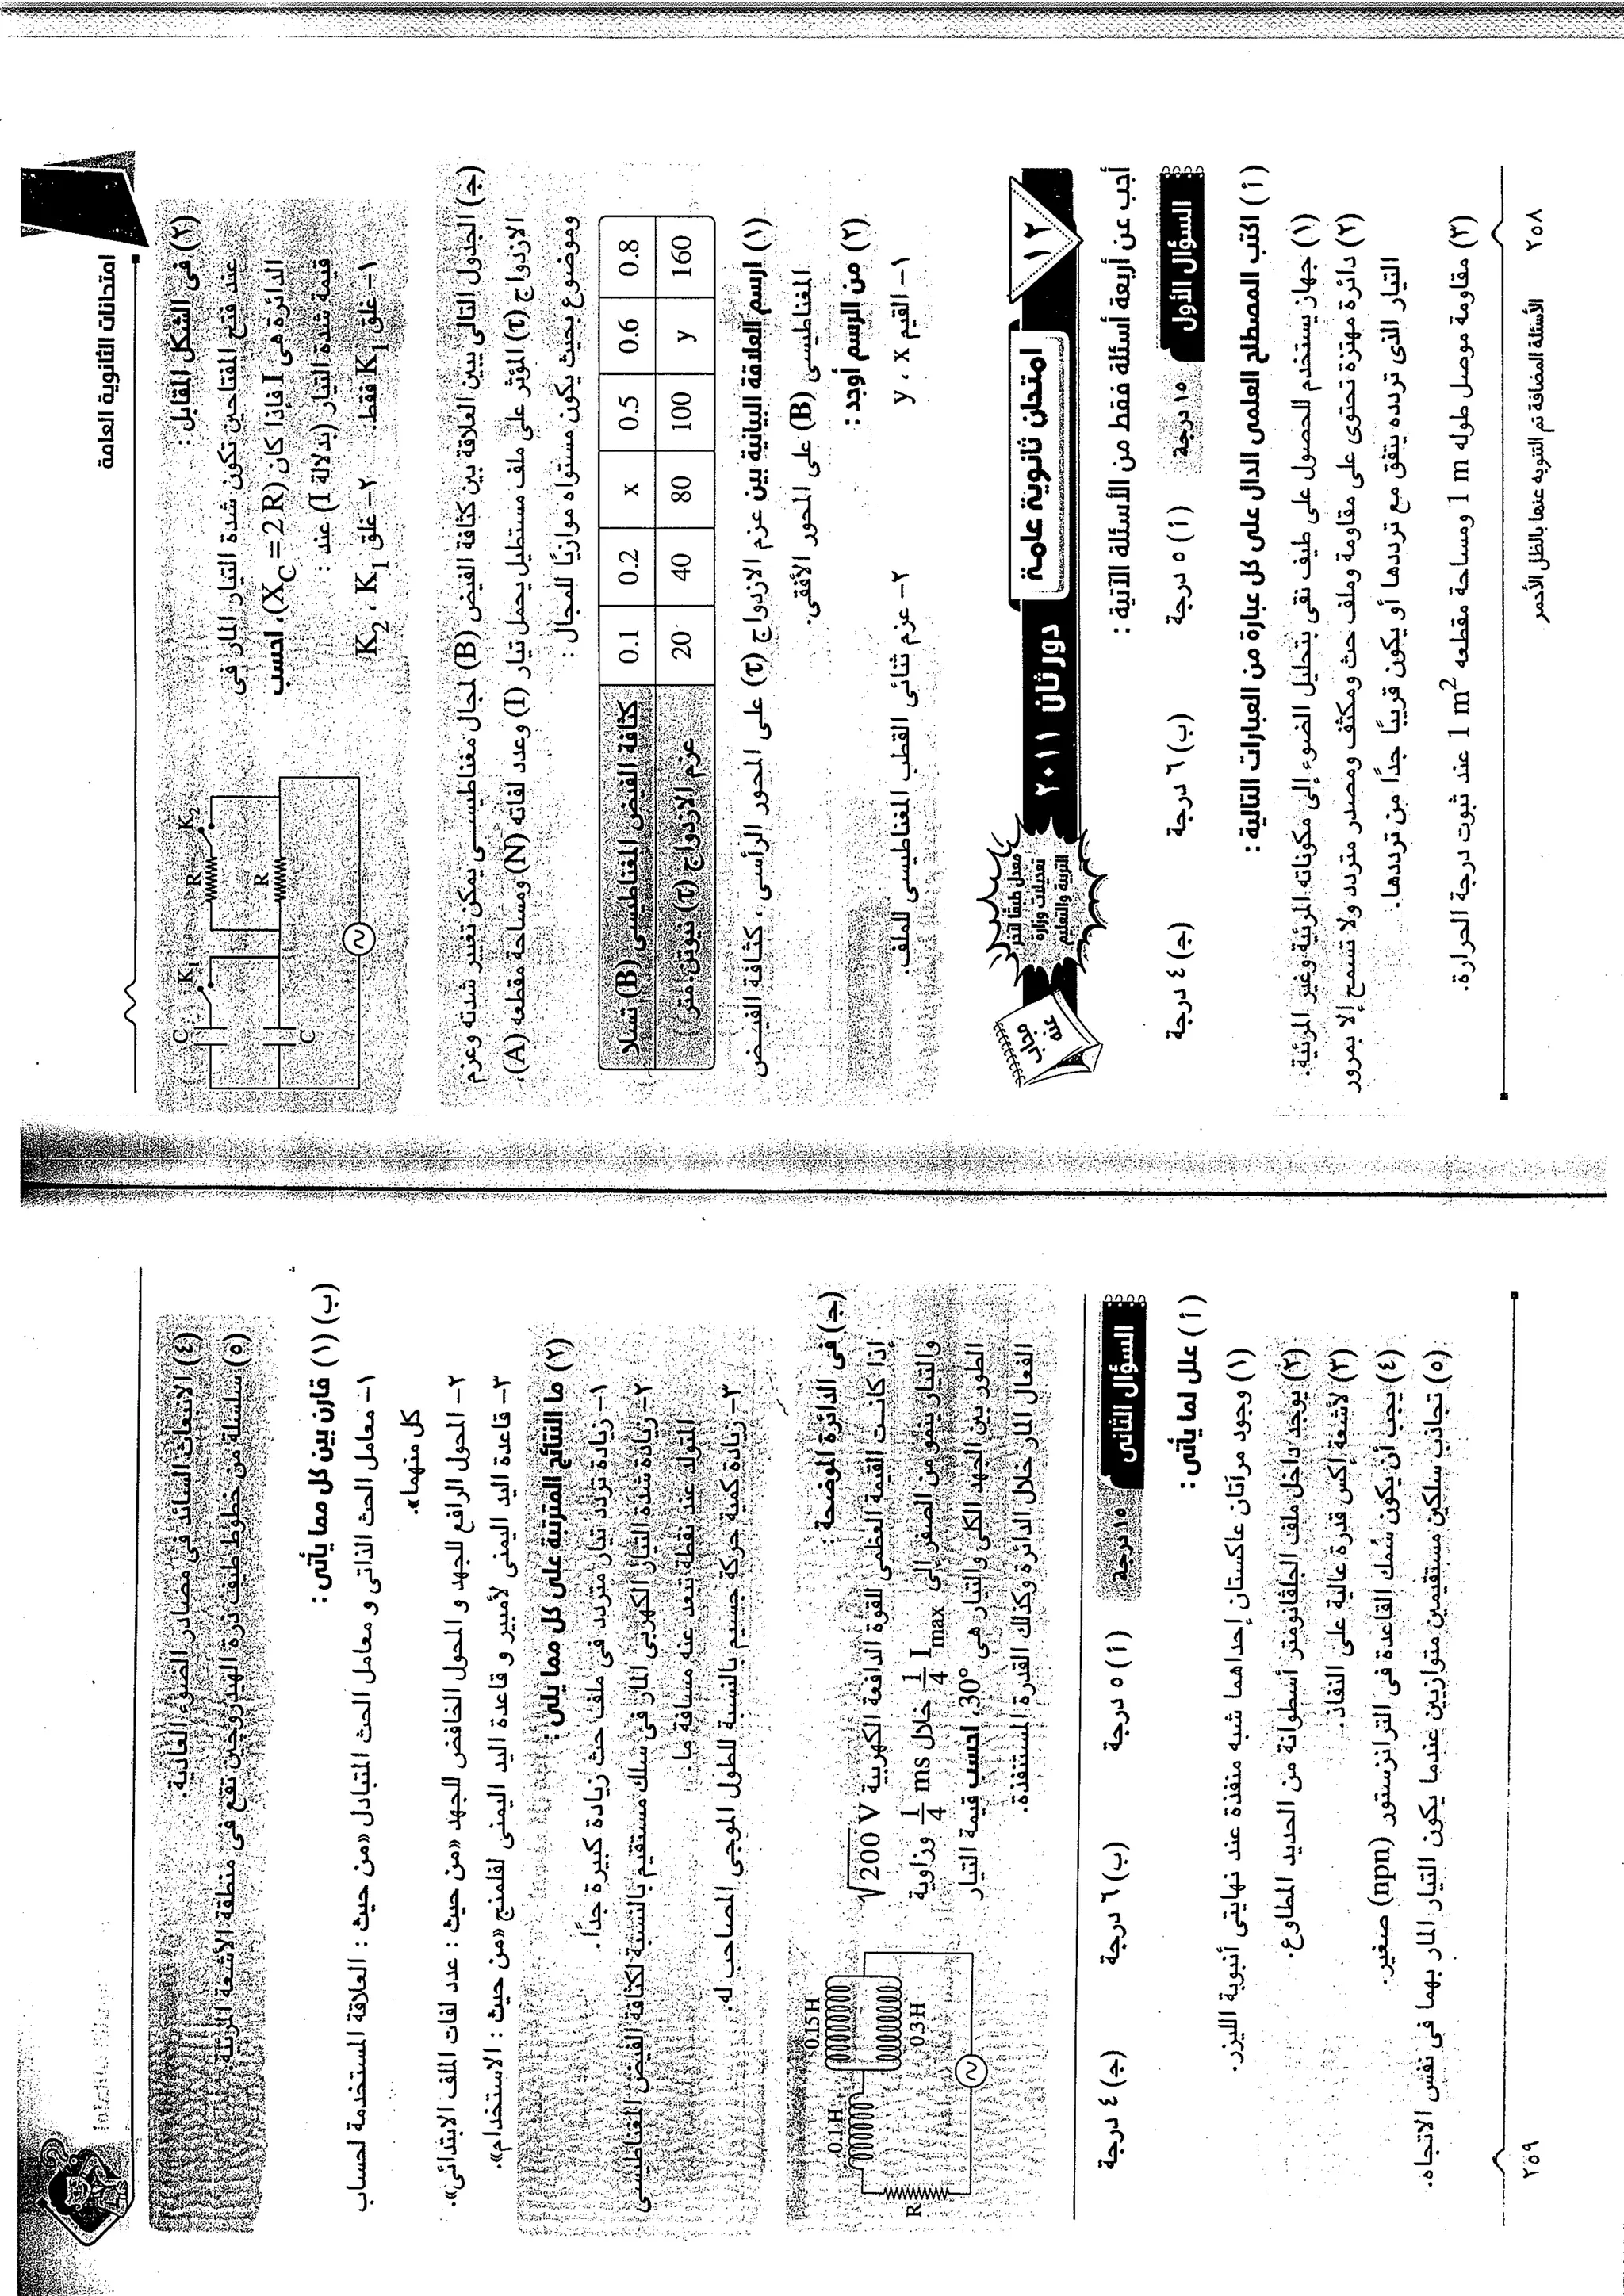 امتحانات الثانوية العامة
(٢) فى الشكل المقابل :
عند فتح المفتاحين تكون شدة التيار المار فى
الدائرة هى I فإذا كان (XC = 2 R)، احسب
قيمة شدة التيار (بدلالة I) عند :
١- غلق K1 فقط. ٢- غلق K1 ، K2
C
K1
R
K2
C
R
(جـ) الجدول التالى يبين العلاقة بين كثافة الفيض (B) لمجال مغناطيسى يمكن تغيير شدته وعزم
الازدواج (τ) المؤثر على ملف مستطيل يحمل تيار (I) وعدد لفاته (N) ومساحة مقطعه (A)،
وموضوع بحيث يكون مستواه موازيًا للمجال :
كثافة الفيض المغناطيسى (B) تسلا 0.1 0.2 x 0.5 0.6 0.8
عزم الازدواج (τ) نيوتن.متر 20 40 80 100 y 160
(١) ارسم العلاقة البيانية بين عزم الازدواج (τ) على المحور الرأسى ، كثافة الفيض
المغناطيسى (B) على المحور الأفقى.
(٢) من الرسم أوجد :
١- القيم x ، y
٢- عزم ثنائى القطب المغناطيسى للملف.
١٢
امتحان ثانوية عامة
دور ثان ٢٠١١
معدل طبقًا لآخر
تعديلات وزارة
التربية والتعليم
مجاب
عنه
أجب عن أربعة أسئلة فقط من الأسئلة الآتية :
السؤال الأول ١٥ درجة (أ) ٥ درجة (ب) ٦ درجة (جـ) ٤ درجة
(أ) اكتب المصطلح العلمى الدال على كل عبارة من العبارات التالية :
(١) جهاز يستخدم للحصول على طيف نقى بتحليل الضوء إلى مكوناته المرئية وغير المرئية.
(٢) دائرة مهتزة تحتوى على مقاومة وملف حث ومكثف ومصدر متردد ولا تسمح إلا بمرور
التيار الذى تردده يتفق مع ترددها أو يكون قريبًا جدًا من ترددها.
(٣) مقاومة موصل طوله 1 m ومساحة مقطعه 1 m2 عند ثبوت درجة الحرارة.
٢٥٨ الأسئلة المضافة تم التنويه عنها بالظل الأحمر
(٤) الانبعاث السائد فى مصادر الضوء العادية.
(٥) سلسلة من خطوط طيف ذرة الهيدروچين تقع فى منطقة الأشعة المرئية.
(ب) (١) قارن بين كل مما يأتى :
١- معامل الحث الذاتى و معامل الحث المتبادل «من حيث : العلاقة المستخدمة لحساب
كل منهما».
٢- المحول الرافع للجهد و المحول الخافض للجهد «من حيث : عدد لفات الملف الابتدائى».
٣- قاعدة اليد اليمنى لأمبير و قاعدة اليد اليمنى لفلمنج «من حيث : الاستخدام».
(٢) ما النتائج المترتبة على كل مما يلى :
١- زيادة تردد تيار متردد فى ملف حث زيادة كبيرة جدًا.
٢- زيادة شدة التيار الكهربى المار فى سلك مستقيم بالنسبة لكثافة الفيض المغناطيسى
المتولد عند نقطة تبعد عنه مسافة ما.
٣- زيادة كمية حركة جسيم بالنسبة للطول الموجى المصاحب له.
(جـ) فى الدائرة الموضحة :
إذا كانت القيمة العظمى للقوة الدافعة الكهربية √200 V
والتيار ينمو من الصفر إلى 1/4 Imax خلال 1/4 ms وزاوية
الطور بين الجهد الكلى والتيار هى 30°، احسب قيمة التيار
الفعال المار خلال الدائرة وكذلك القدرة المستنفذة.
0.15H
0.1H
0.3H
R
السؤال الثانى ١٥ درجة (أ) ٥ درجة (ب) ٦ درجة (جـ) ٤ درجة
(أ) علل لما يأتى :
(١) وجود مرآتان عاكستان إحداهما شبه منفذة عند نهايتى أنبوبة الليزر.
(٢) يوجد داخل ملف الجلفانومتر أسطوانة من الحديد المطاوع.
(٣) لأشعة إكس قدرة عالية على النفاذ.
(٤) يجب أن يكون سُمك القاعدة فى الترانزستور (npn) صغير.
(٥) تجاذب سلكين مستقيمين متوازيين عندما يكون التيار المار بهما فى نفس الاتجاه.
٢٥٩